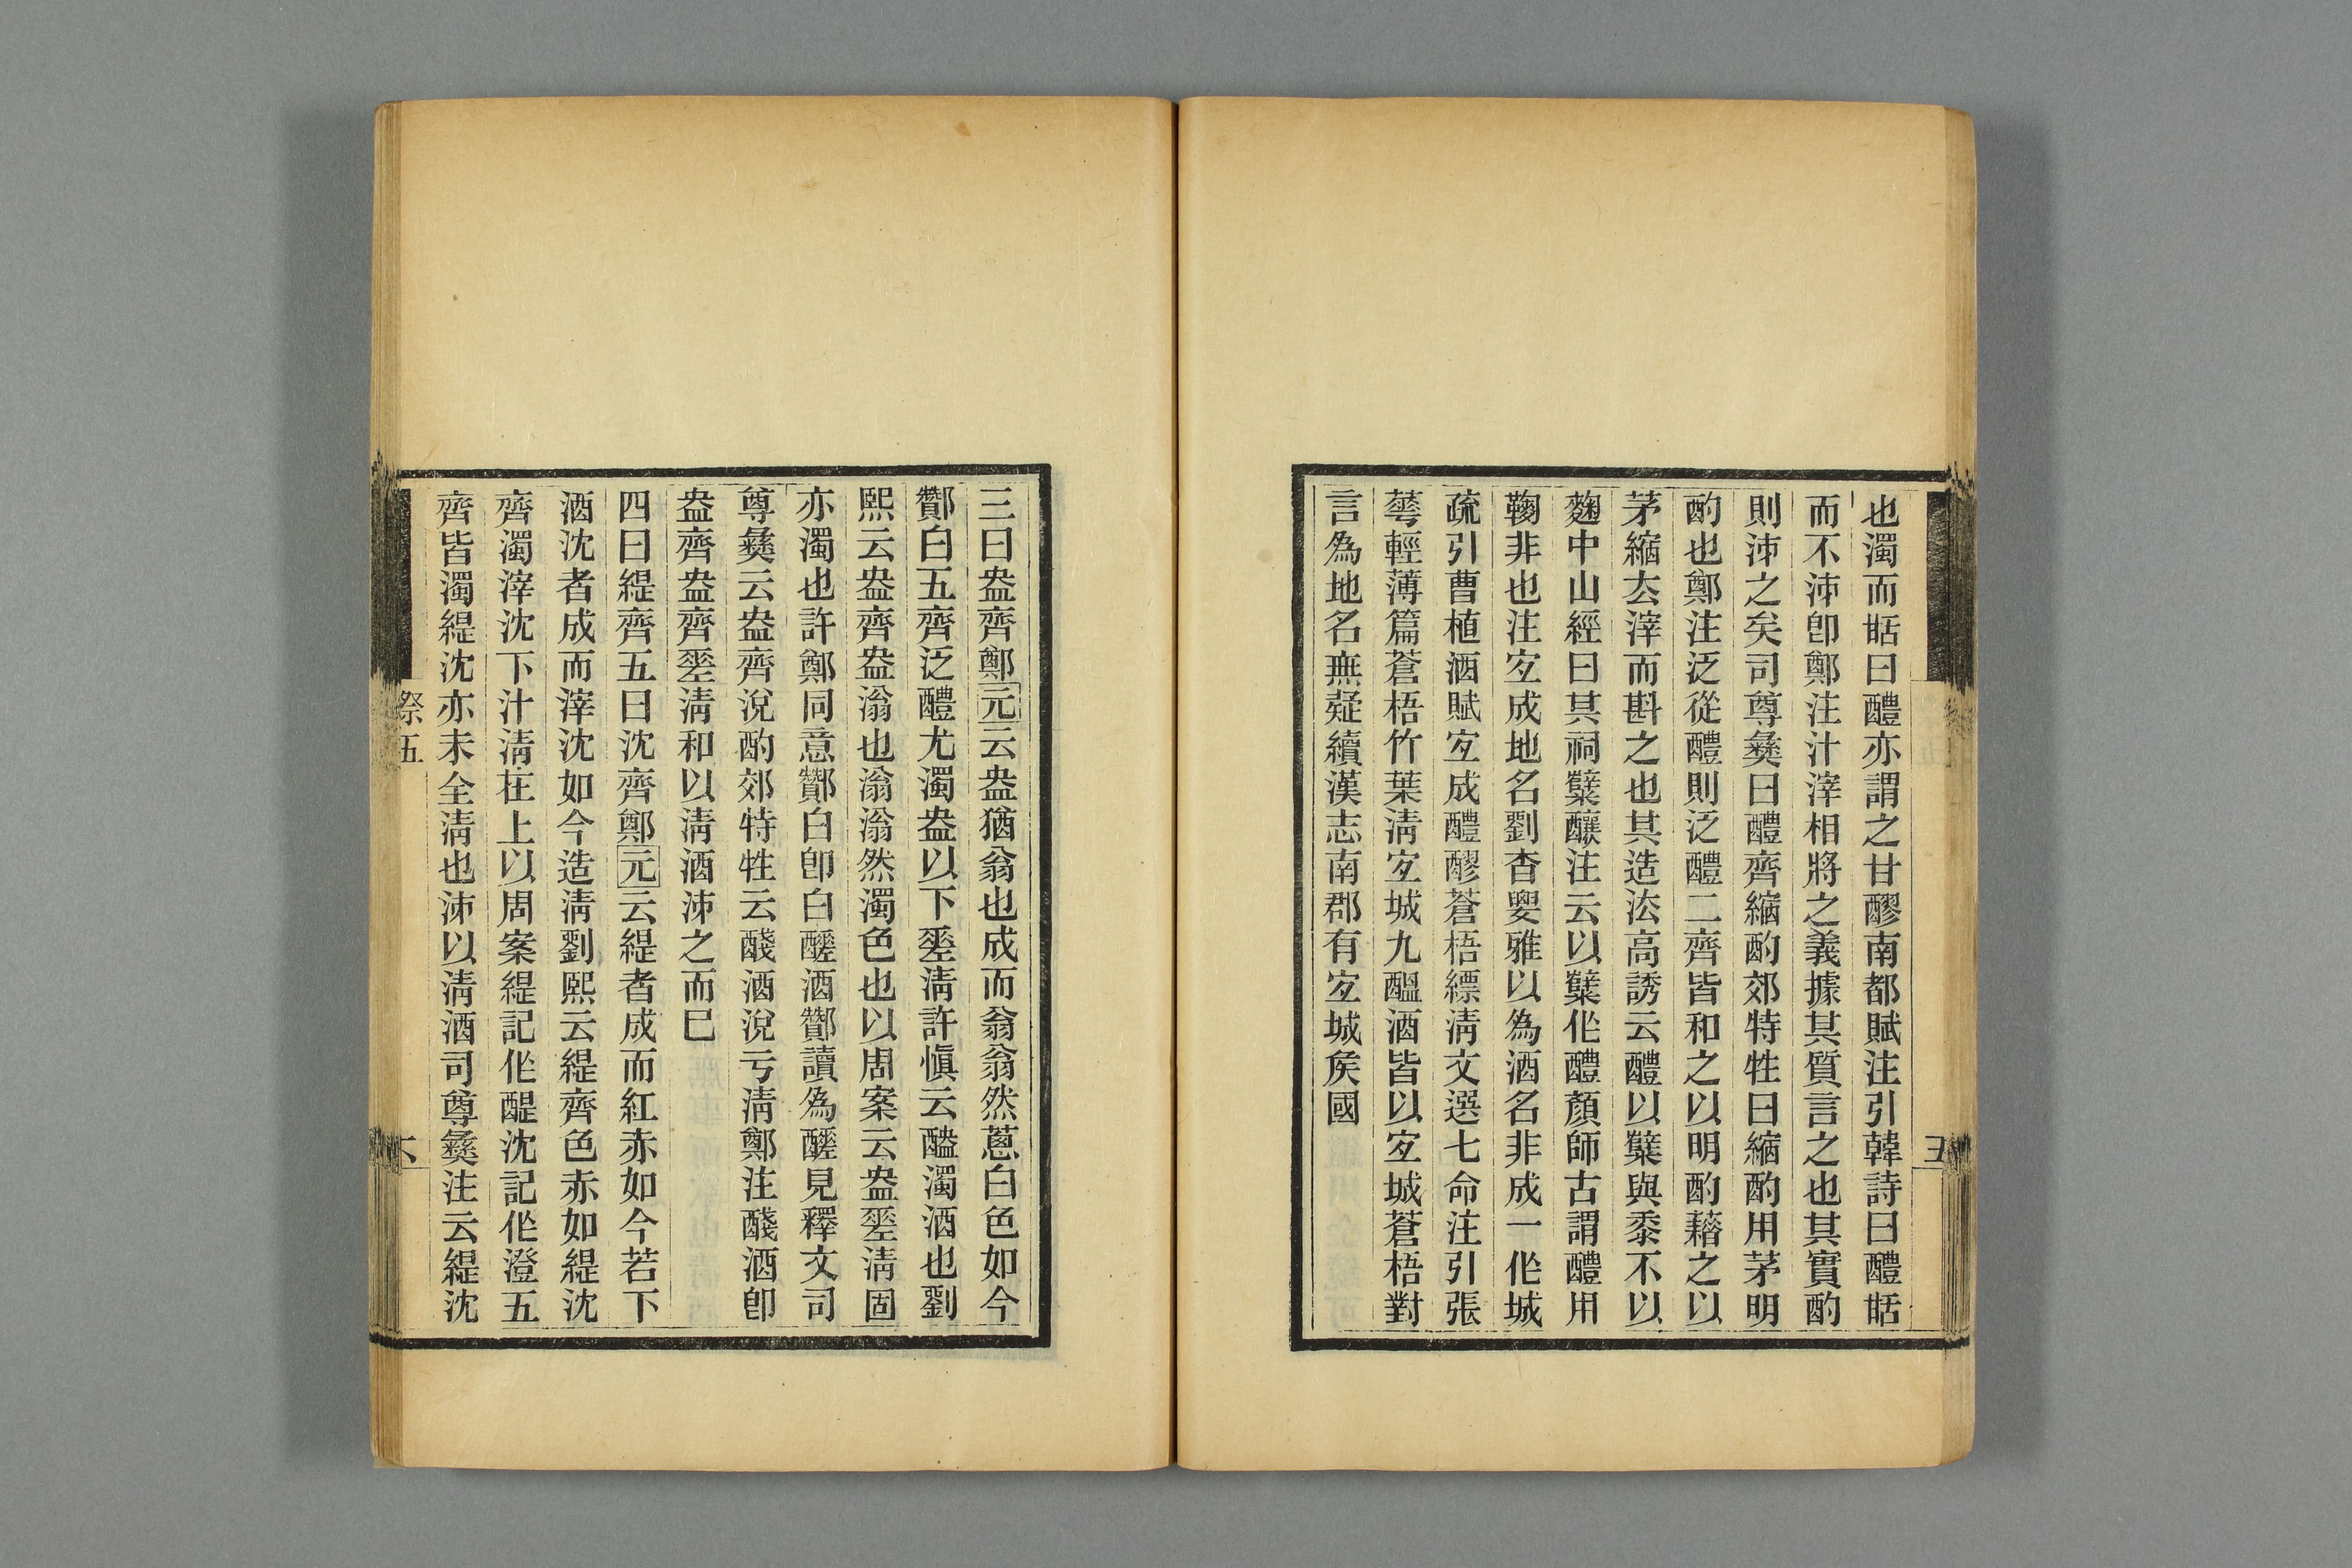 也濁而甛曰醴亦謂之甘醪南都賦注引韓詩曰醴甛
而不泲卽鄭注汁滓相將之義據其質言之也其實酌
則泲之矣司尊彝曰醴齊縮酌郊特牲曰縮酌用茅明
酌也鄭注泛從醴則泛醴二齊皆和之以明酌藉之以
茅縮厺滓而斟之也其造法高誘云醴以糵與黍不以
麴中山經曰其祠糵釀注云以糵作醴顏師古謂醴用
鞠非也注宐成地名劉杳㛮雅以為酒名非成一作城
疏引曹植酒賦宐成醴醪蒼梧縹淸文選七命注引張
蕚輕薄篇蒼梧竹葉淸宐城九醖酒皆以宐城蒼梧對
言為地名無疑續漢志南郡有宐城矦國
五
三曰盎齊鄭元云盎猶翁也成而翁翁然蔥白色如今
酇白五齊泛醴尤濁盎以下㙔淸許愼云醠濁酒也劉
熙云盎齊盎滃也滃滃然濁色也以周案云盎㙔淸固
亦濁也許鄭同意酇白卽白醝酒酇讀為醝見釋文司
尊彝云盎齊涗酌郊特牲云醆酒涗亏淸鄭注醆酒卽
盎齊盎齊㙔淸和以淸酒泲之而巳
四曰緹齊五曰沈齊鄭元云緹者成而紅赤如今若下
酒沈者成而滓沈如今造淸劉熙云緹齊色赤如緹沈
齊濁滓沈下汁淸在上以周案緹記作醍沈記作澄五
齊皆濁緹沈亦未全淸也泲以淸酒司尊彝注云緹沈
祭五
六